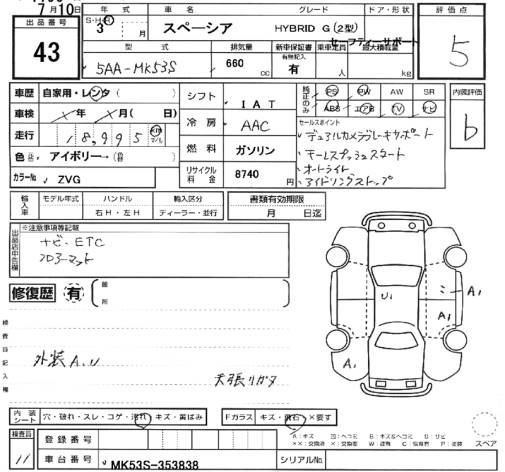 7月10日
出品番号 43
年式 車名 グレード ドア・形状 評価点
S・H・R 3 月 スペーシア HYBRID G(2型)
セーフティーサポート
5
型式 排気量 新車保証書 乗車定員 最大積載量
有無記入
5AA-MK53S 660 cc 有 人 kg
車歴 自家用・レンタ( )
シフト IAT
純正のみ PS PW AW SR
ABS エアB TV ナビ
内装評価 b
車検 年 月( 日)
冷房 AAC
セールスポイント
デュアルカメラブレーキサポート
走行 18,995 km マイル
キーレスプッシュスタート
色 アイボリー( )
燃料 ガソリン
オートライト
カラーNo. ZVG
リサイクル料金 8740 円
アイドリングストップ
輸入車 モデル年式 ハンドル 輸入区分 書類有効期限
右H・左H ディーラー・並行 月 日迄
※注意事項等記載
出品店申告欄
ナビ・ETC
フロアーマット
修復歴 有 箇所
検査員記入欄
U1
A1
A1
A1
外装A.U
天張りガタ
内装シート 穴・破れ・スレ・コゲ・汚れ・キズ・黄ばみ
Fガラス キズ・飛石・×要す
スペア
検査員 11
登録番号
車台番号 MK53S-353838 シリアルNo.